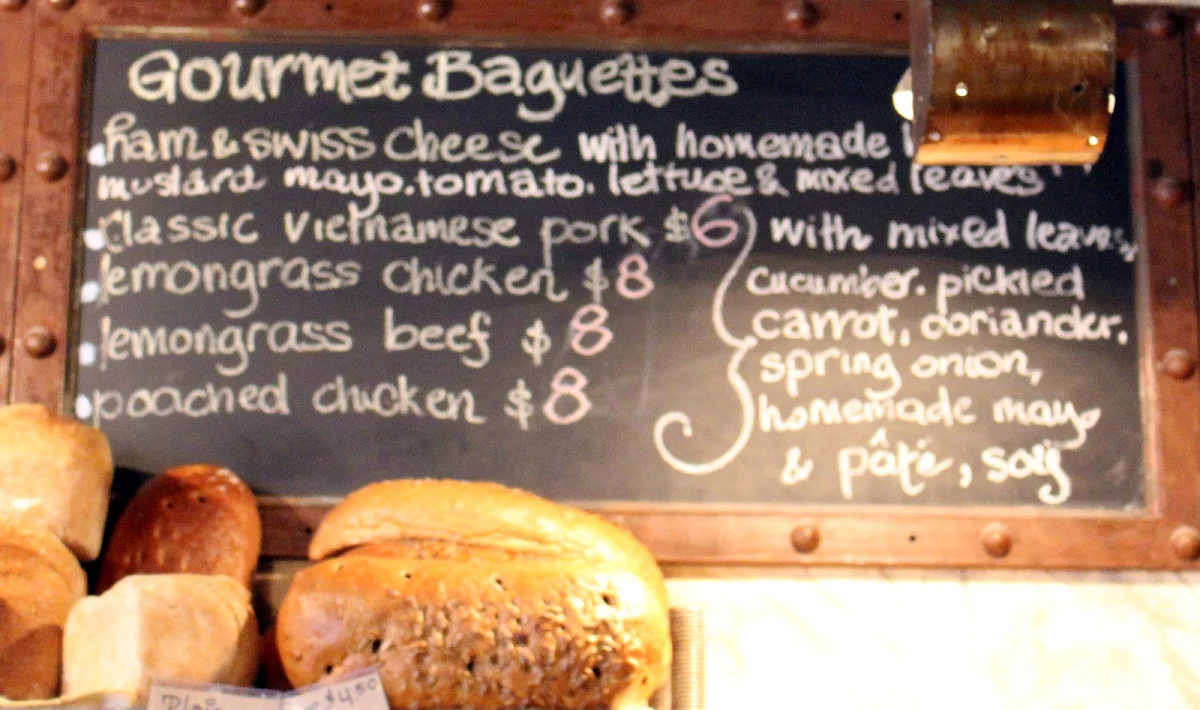 Gourmet Baguettes
ham & swiss cheese with homemade
mustard mayo. tomato. lettuce & mixed leaves
classic Vietnamese pork $6
lemongrass chicken $8
lemongrass beef $8
poached chicken $8
with mixed leaves,
cucumber. pickled
carrot, coriander.
spring onion,
homemade mayo
& pâté, soy
Plain
$4.50